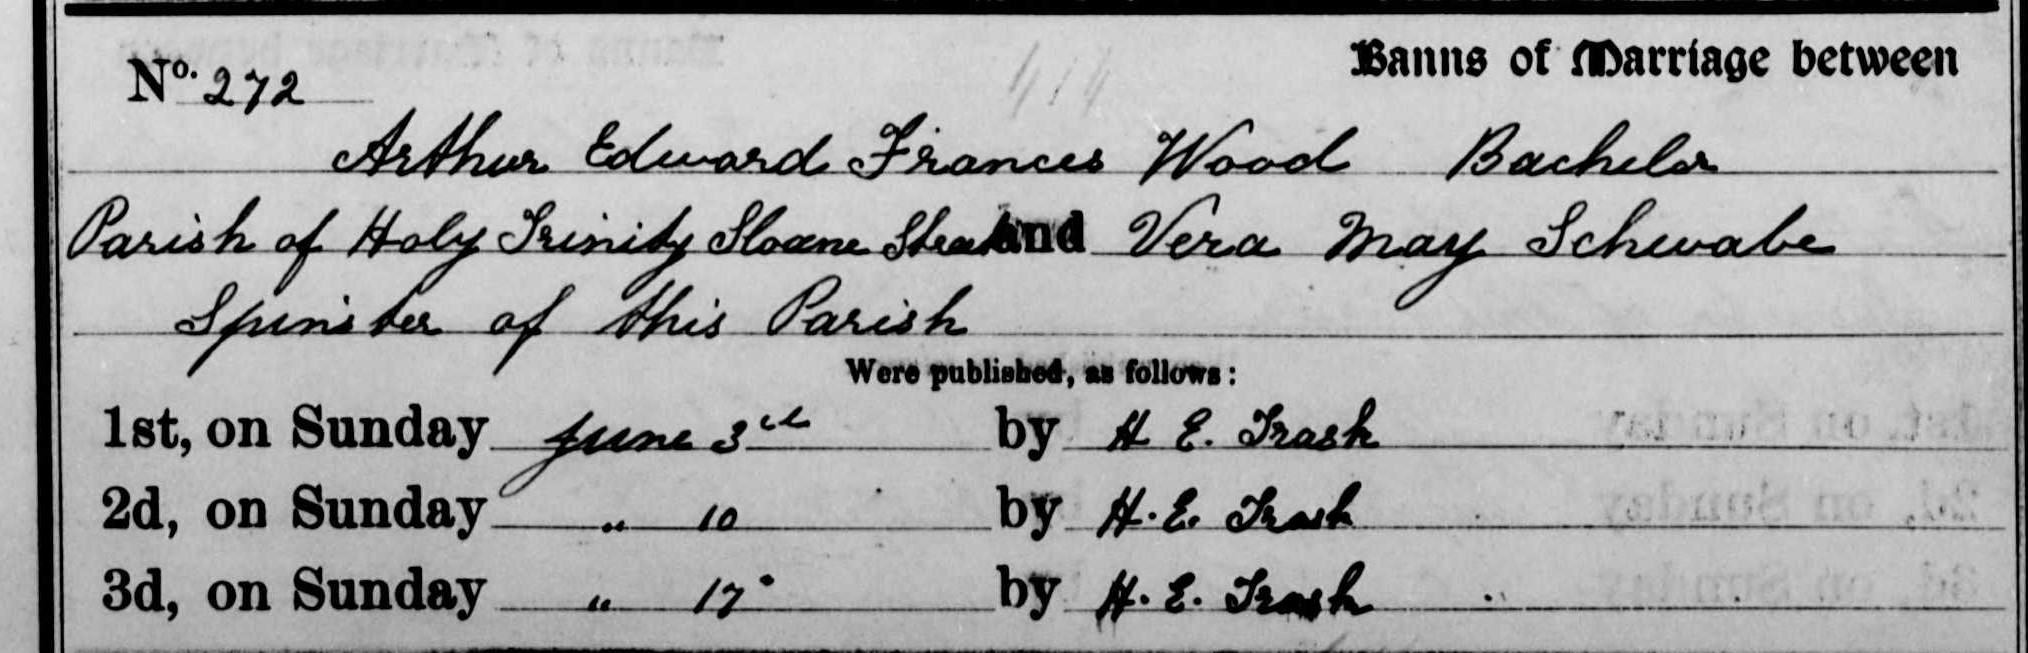 No. 272 Banns of Marriage between
Arthur Edward Frances Wood Bachelor
Parish of Holy Trinity Sloane Street and Vera May Schwabe
Spinster of this Parish
Were published, as follows:
1st, on Sunday June 3rd by H E. Trash
2d, on Sunday „ 10 by H. E. Trash
3d, on Sunday „ 17 by H. E. Trash